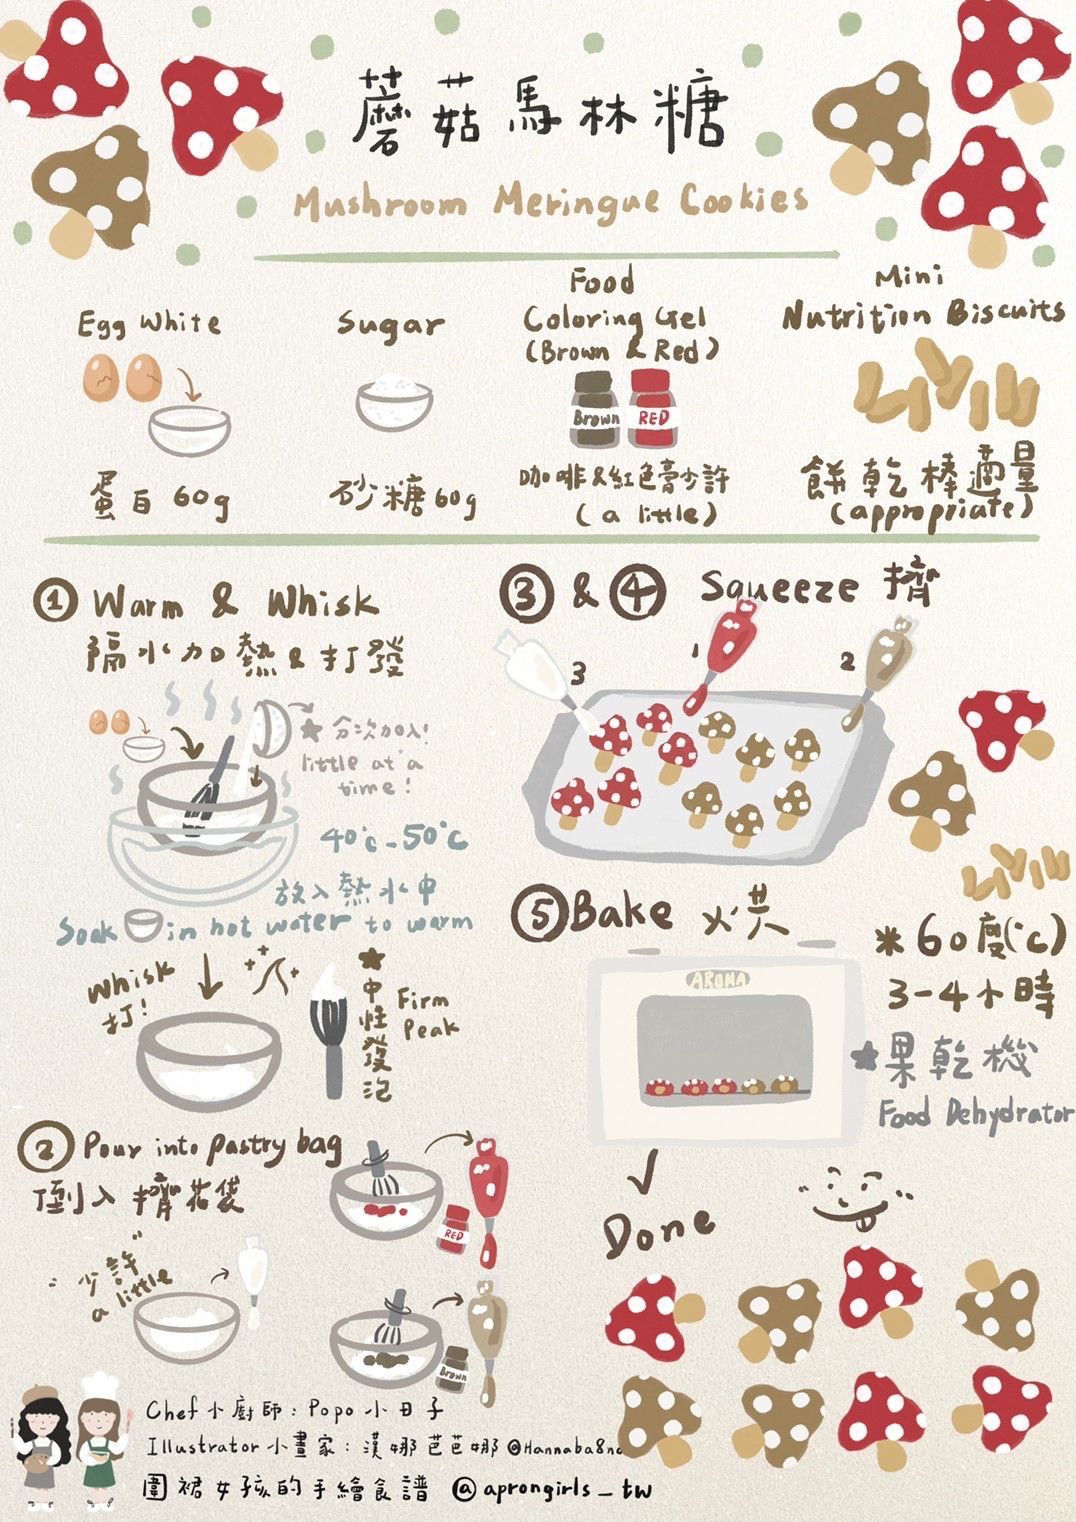 蘑菇馬林糖
Mushroom Meringue Cookies
Egg White
蛋白 60g
Sugar
砂糖 60g
Food
Coloring Gel
(Brown & Red)
Brown
RED
咖啡&紅色膏少許
(a little)
Mini
Nutrition Biscuits
餅乾棒適量
(appropriate)
① Warm & Whisk
隔水加熱&打發
★ 分次加入!
little at a
time!
40°c-50°c
放入熱水中
Soak in hot water to warm
Whisk
打!
★中性發泡
Firm
Peak
② Pour into pastry bag
倒入擠花袋
RED
"少許"
a little
Brown
③ & ④ Squeeze 擠
3
1
2
⑤ Bake 烘
AROMA
*60度(°c)
3-4小時
★果乾機
Food Dehydrator
✓
Done
Chef 小廚師:Popo 小日子
Illustrator 小畫家:漢娜芭芭娜 @Hannaba8na
圍裙女孩的手繪食譜 @aprongirls_tw